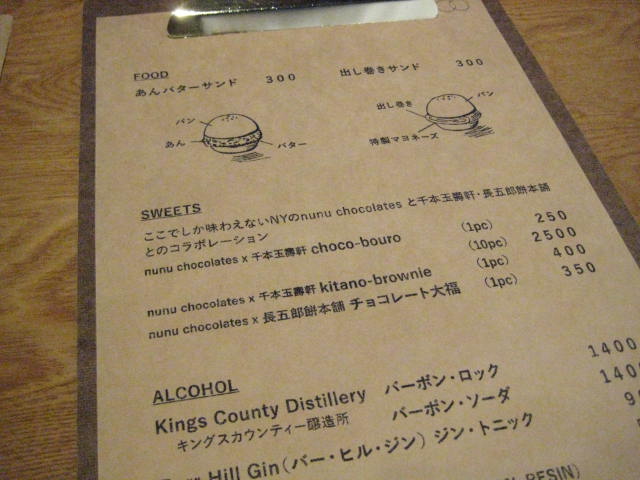 FOOD
あんバターサンド 300 出し巻きサンド 300
パン
あん
バター
パン
出し巻き
特製マヨネーズ
SWEETS
ここでしか味わえないNYのnunu chocolates と千本玉壽軒・長五郎餅本舗
とのコラボレーション
nunu chocolates x 千本玉壽軒 choco-bouro (1pc) 250
(10pc) 2500
nunu chocolates x 千本玉壽軒 kitano-brownie (1pc) 400
nunu chocolates x 長五郎餅本舗 チョコレート大福 (1pc) 350
ALCOHOL
Kings County Distillery バーボン・ロック 1400
キングスカウンティー醸造所 バーボン・ソーダ
Hill Gin(バー・ヒル・ジン) ジン・トニック
RESIN)